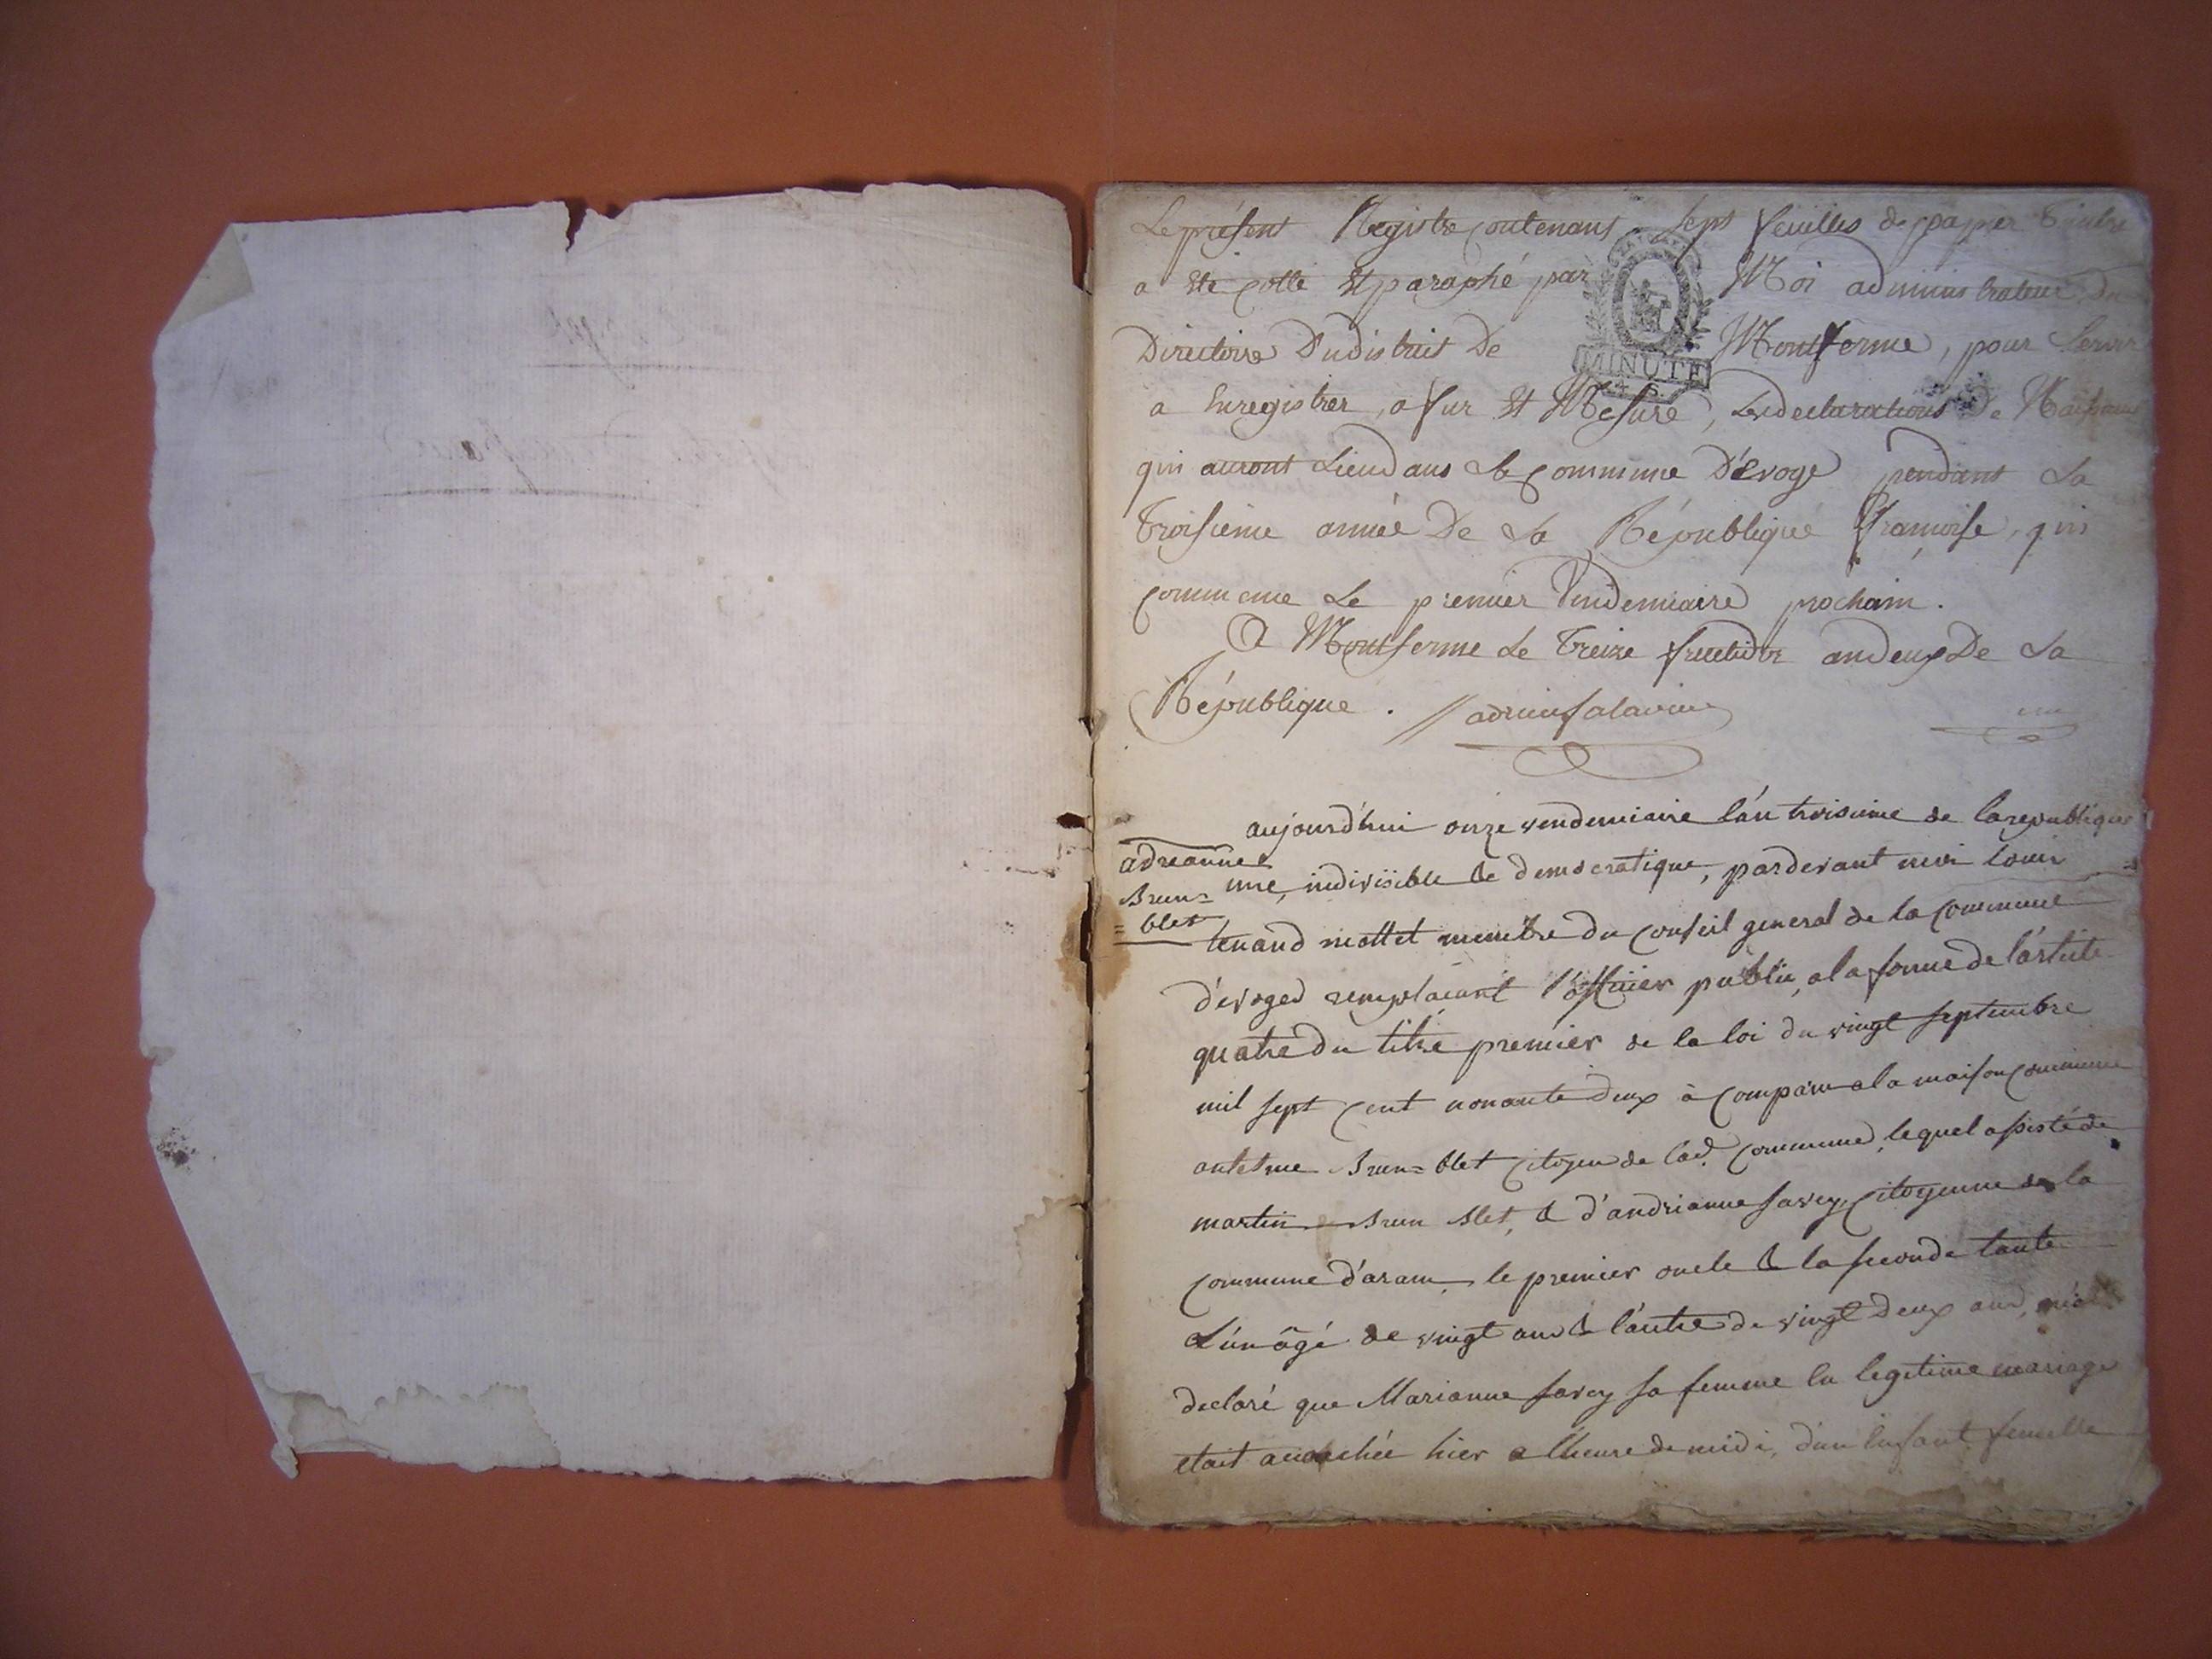 Le présent Registre contenant sept feuilles de papier timbre
a été cotté et paraphé par Moi administrateur du
Directoire Du district De Montferme, pour servir
MINUTE
a Enregistrer, a fur et Mesure, Les declarations De Naissance
qui auront Lieu dans la commune D'Evoge pendant La
troisieme année De La République francoise, qui
commence Le premier Vendemiaire prochain.
A Montferme Le treize fructidor an deux De La
République.
aujourd'hui onze vendemiaire l'an troisieme de la republique
adreanne
Brun=
=blet
une, indivisible & democratique, pardevant moi louis
tenand mottet membre du conseil general de la commune
d'evoges remplacant l'officier public, a la forme de l'article
quatre du titre premier de la loi du vingt septembre
mil sept cent nonante deux à comparu a la maison commune
antelme Brun=blet citoyen de lad. commune, lequel assisté de
martin Brun blet, & d'andrianne savey citoyenne de la
commune d'aram, le premier oncle & la seconde tante
L'un âgé de vingt ans & l'autre de vingt deux ans, m'a
declaré que Marianne savey sa femme en legitime mariage
etait accouchée hier a lheure de midi, d'un Enfant femelle